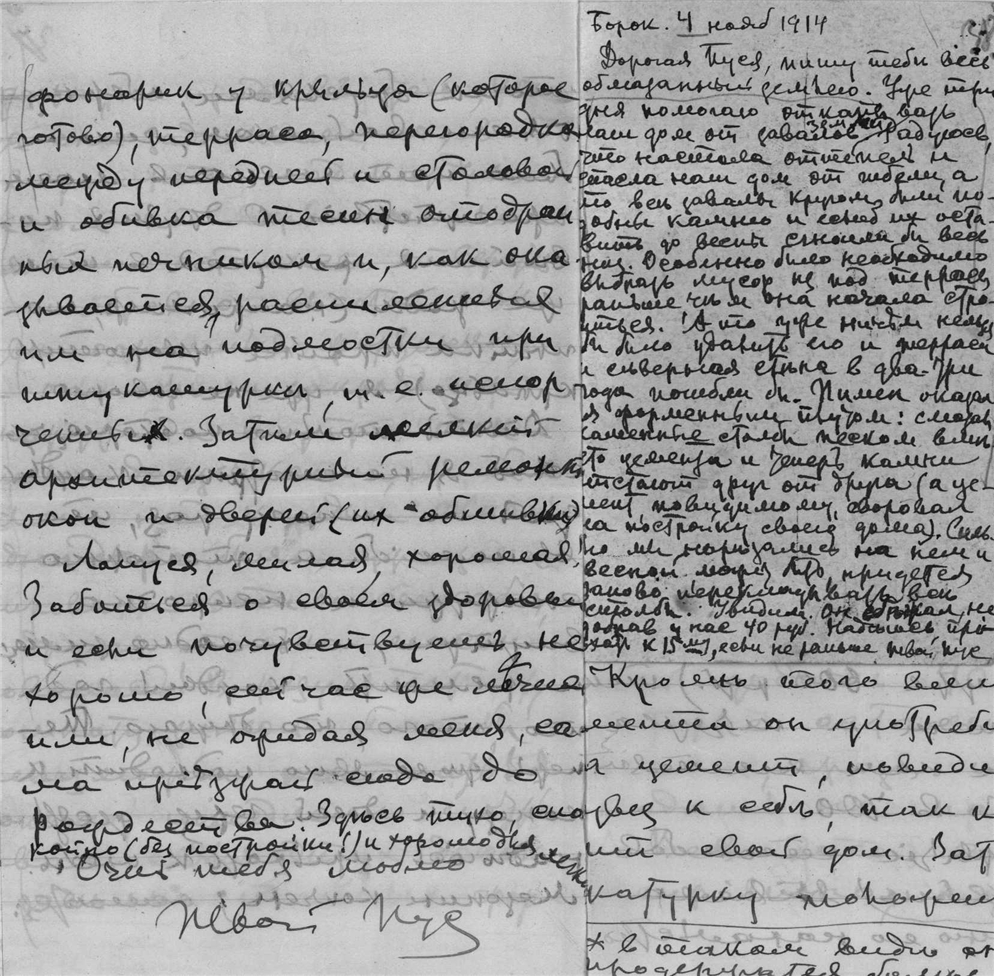 фонарик у крыльца (которое
готово), терраса, перегородка
между передней и столовой
и обивка стен отодран
ных печником и, как ока
зывается,
им на подмостки при
штукатурке, т. е. испор
ченных. Затем мелкий
архитектурный ремонт
окон и дверей (их обшивка)
Лапуся, милая, хорошая,
Заботься о своем здоровьи
и если почувствуешь не
хорошо, сейчас же
или, не ожидая меня, са
ма прiѣзжай сюда до
рождества. Здѣсь тихо, спо
койно (без постройки!) и хорошо для
Очень тебя люблю
Твой Пуся
Борок. 4 нояб 1914
Дорогая Пуся, пишу тебе весь
обмазанный землею. Уже три
дня помогаю откапывать
наш дом от завалов. Радуюсь,
что настала оттепель и
спасла наш дом от гибели, а
то весь завалы кругом были по-
добны камню и оста-
вить до весны сгноили бы весь
низ. Особенно было необходимо
выбрать мусор из под террасы
раньше чем она начала стро-
иться. А то уже ничем нельзя
бы было удалить его и терраса
и сѣверная стѣна в два-три
года погибли бы. Пимен оказал
ся форменным плутом: смазал
каменные столбы песком вмес
то цемента и теперь камни
отстают друг от друга (а це-
мент, повидимому, своровал
на постройку своего дома). Силь
но мы нарезались на нем и
весной может быть придется
заново весь
столбы. Увидим. Он не
добрав у нас 40 руб. Надеюсь при-
ехать к 15 му, если не раньше твой Пуся
Кромѣ того вмѣ
мента он употреби
а цемент, повиди
увез к себѣ, так к
ит свой дом. Зат
катурку
* в таком видѣ он